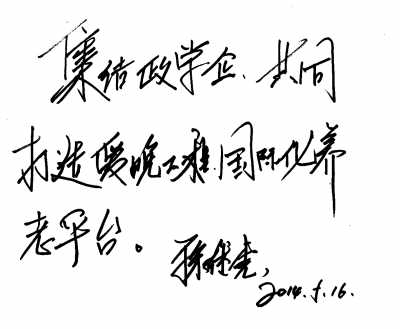 集结政学企、共同
打造爱晚工程国际化养
老平台。
2014.5.16.